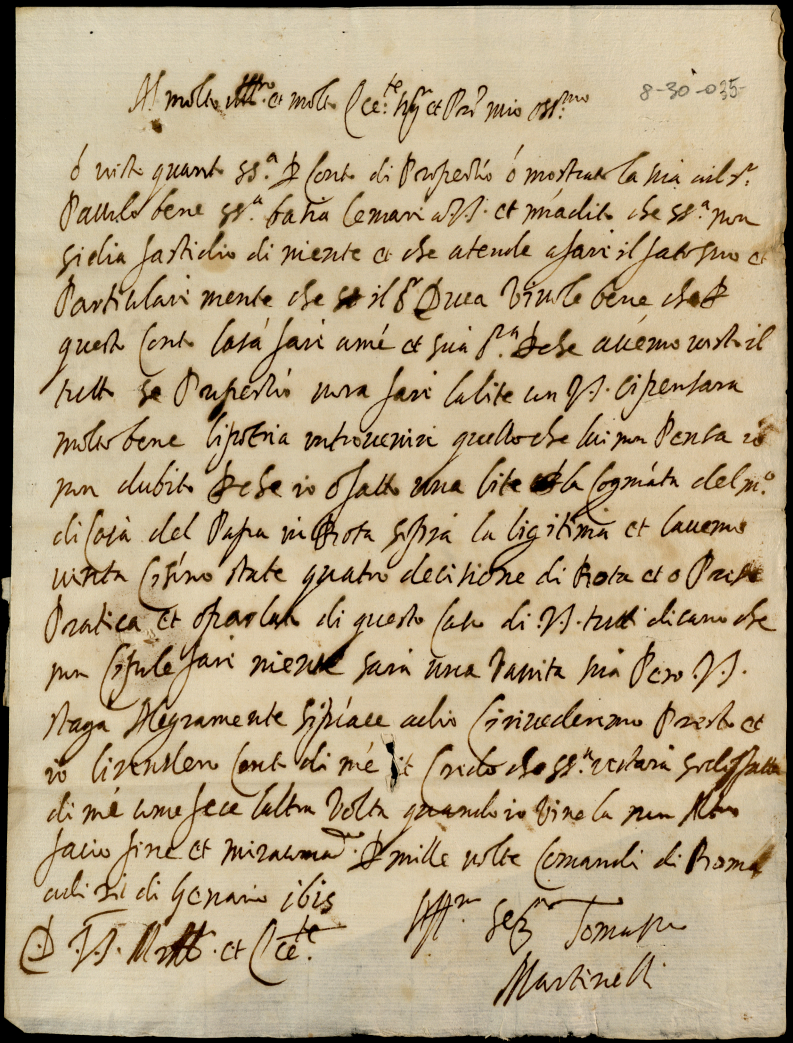 Al molto Ill.re et molto Ecc.te Sig.r et Pro.ne mio oss.mo
8-30-035
ó visto quanto SS.a P Conto di Propertió ó mostrato la sua al S.r
Pauulo bene SS.a bacia le mani a V.S. et m'ádito che SS.a non
si dia fastidio di niente et che atende a fare il fato suo et
Particularmente che il S.r Duca Vuole bene che P
questo Conto lasá fare amé et sua S.a Pche auémo visto il
tutto se Propertió vora fare la lite con V.S. ci pensara
molto bene li potria introuenire quello che lui non Pensa io
non dubito Pche io ó fatto una lite P la Cogniáta del m.o
di Casa del Papa in Rota sopra la ligitima et lauemo
uinta Ci sóno state quatro decisione di Rota et o Presa
Pratica et o parlato di questo Caso di V.S. tutti dicano che
non Ci pole fare niente sara una Vanita sua Pero V.S.
stagá Alegramente si piáce a dio Ci riuederemo Presto et
io li rendero Conto di mé et Credo che SS.a restara sodisfatta
di mé come fece laltra Volta quando io Vine la non Altro
facio fine et mi racomã.do P mille volte Comandi di Roma
adi 21 di Genario 1615
D. V.S. M. Ill. et Ecc.te
Aff.mo Ser.re Tomasso
Martinelli